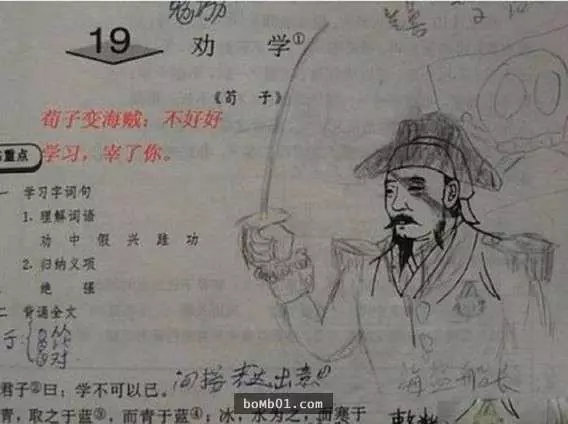 勉励
19 劝 学①
《荀 子》
荀子变海贼：不好好
学习，宰了你。
重点
一 学习字词句
1. 理解词语
劝 中 假 兴 跬 功
2. 归纳义项
绝 强
二 背诵全文
海盗船长
君子②曰：学不可以已。
青，取之于蓝③，而青于蓝④；冰，水为之，而寒于
bOMb01.com